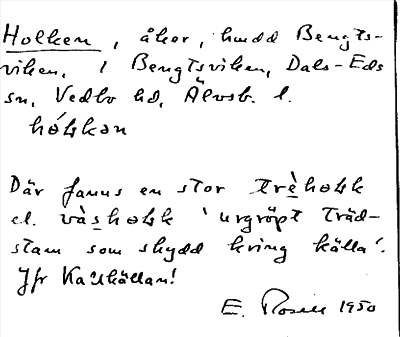 Holken, åker, hmdd Bengts-
viken, / Bengtsviken, Dals-Eds
sn, Vedbo hd, Älvsb. l.
hóɫkən
Där fanns en stor trèhoɫk
el. vàshoɫk 'urgröpt träd-
stam som skydd kring källa'.
Jfr Kalkällan!
E. Rosell 1950